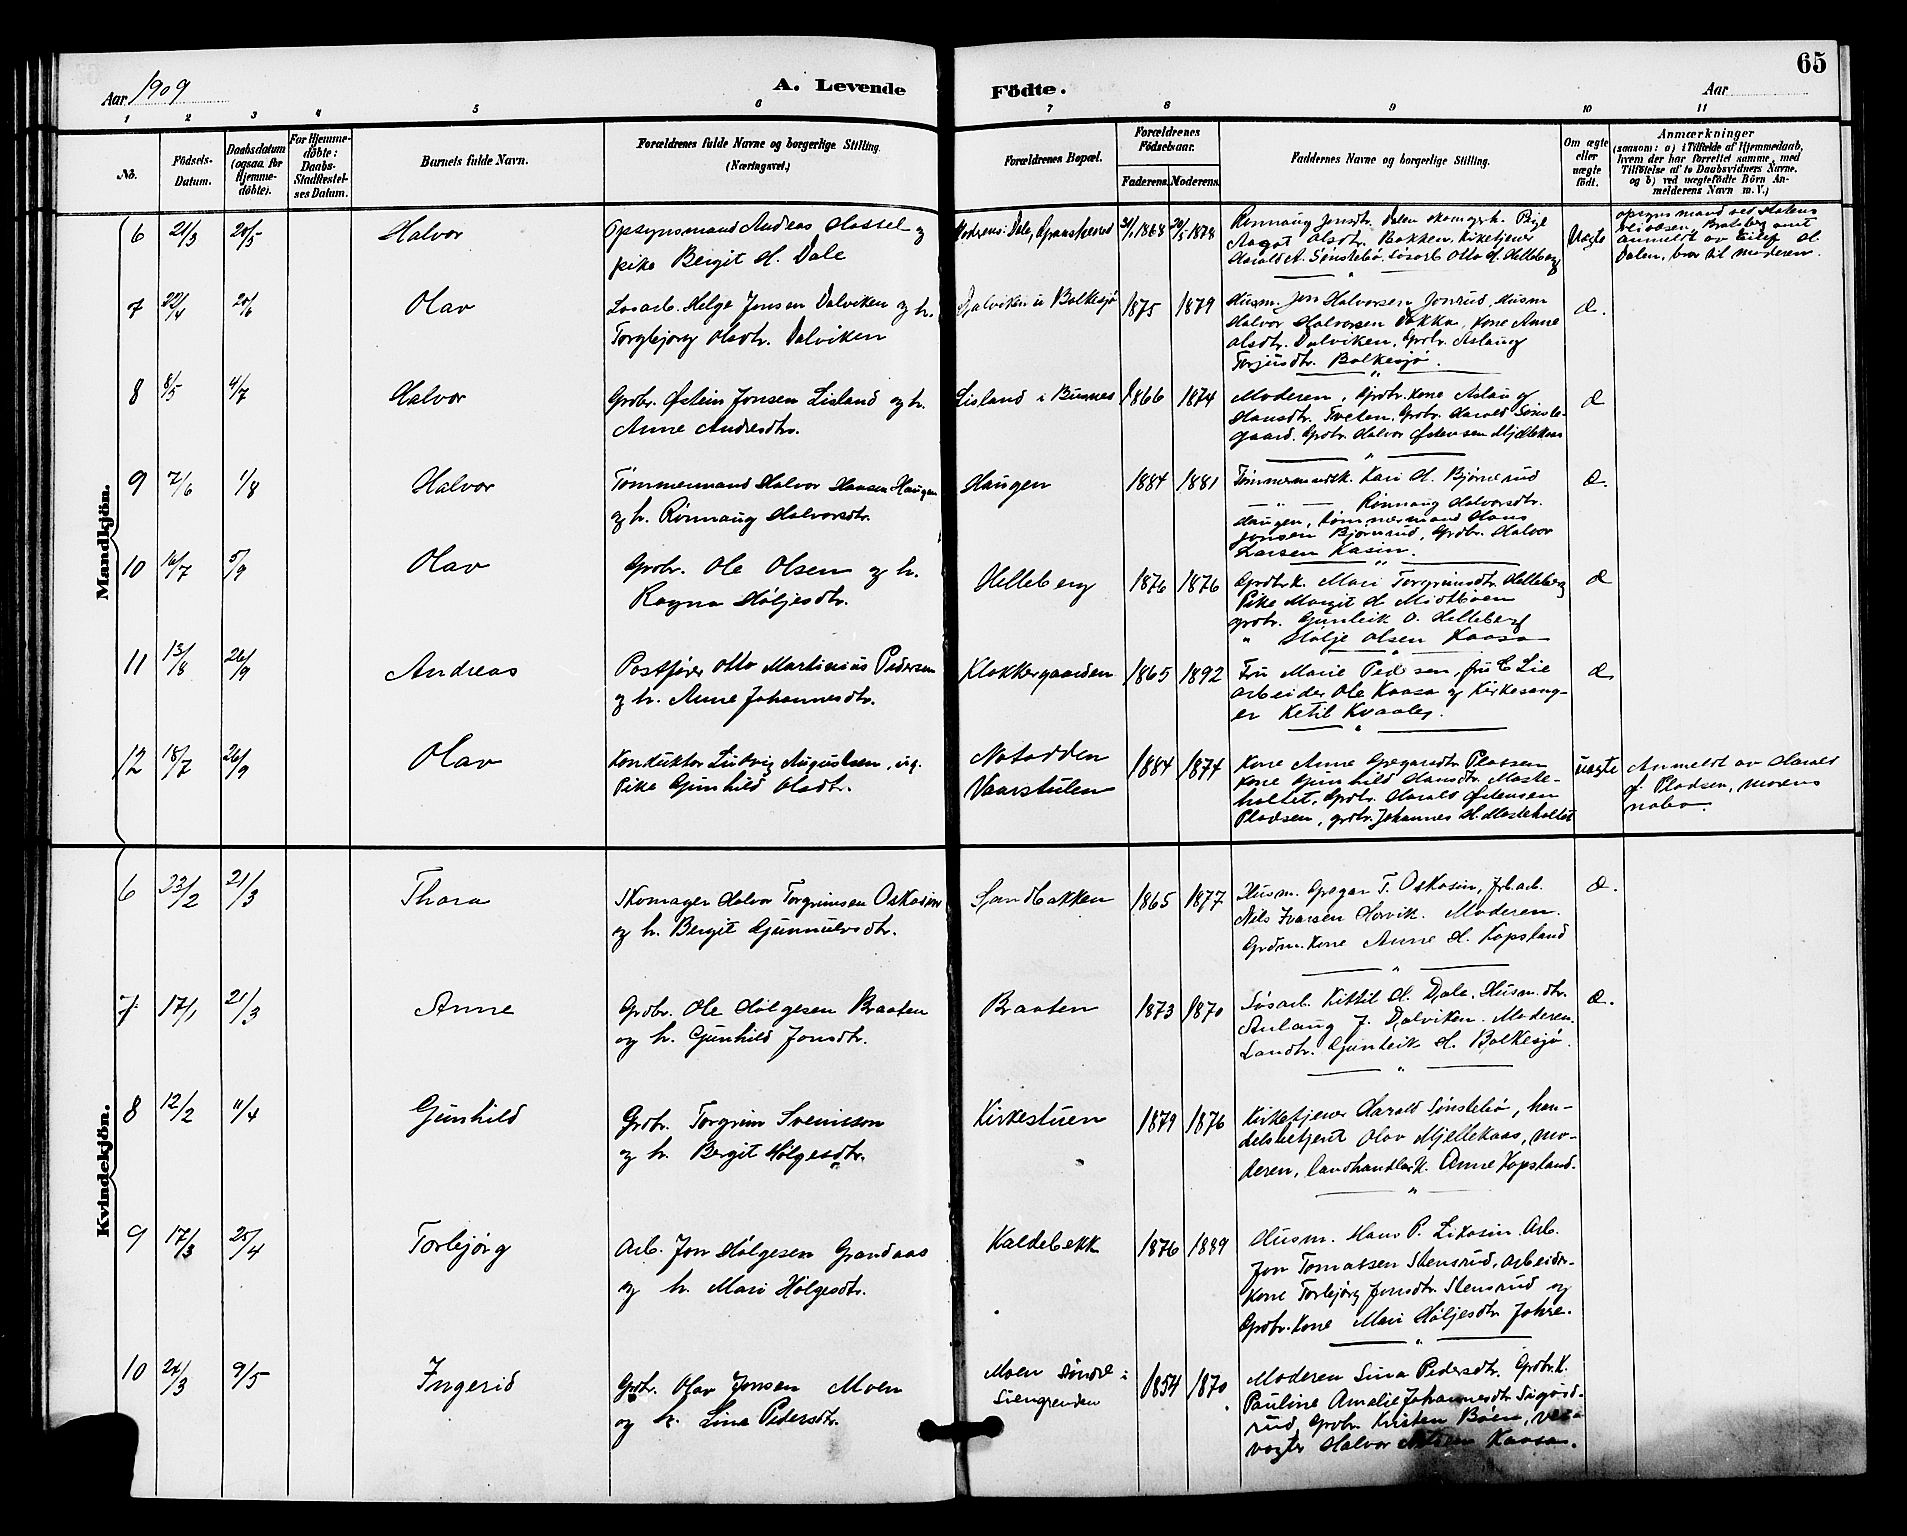 65
Aar 1909
A. Levende
Födte.
Aar
1 2 3 4 5 6 7 8 9 10 11
No.
Födsels-
Datum.
Daabsdatum
(ogsaa for
Hjemme-
döbte).
For Hjemme-
döbte:
Daabs-
Stadfæstel-
ses Datum.
Barnets fulde Navn.
Forældrenes fulde Navne og borgerlige Stilling
(Næringsvei.)
Forældrenes Bopæl.
Forældrenes
Födselsaar.
Faderens. Moderens.
Faddernes Navne og borgerlige Stilling.
Om ægte
eller
uægte
født.
Anmærkninger
(saasom: a) i Tilfælde af Hjemmedaab,
hvem der har forrettet samme, med
Tilföielse af to Daabsvidners Navne.
og b) ved uægtefödte Börn An-
melderens Navn m. V.)
Mandkjön.
6 21/3 20/5 Halvor
Opsynsmand Andreas Hassel og
pike Bergit H. Dale
Moderens: Dale, Gransherad
1868 1878
Rønnaug Jonsdtr. Dalen
Aagot Olsdtr. Bakken. Kirketjener
Harald A. Sønstebø, løsarb. Otto H. Helleberg
Uægte
opsynsmand ved Statens
anmeldt av Eilef H.
Dalen, bror til moderen.
7 22/4 20/6 Olav
Løsarb. Helge Jonsen Dalviken og h.
Torgbjørg Olsdtr. Dalviken
Dalviken i Bolkesjø
1875 1879
Husm. Jon Halvorsen Jonrud, Husm
Halvor Halvorsen Vakka, kone Anne
Olsdtr. Dalviken, Grdbr. Aslaug
Torjusdtr. Bolkesjø.
Æ.
8 8/5 4/7 Halvor
Grdbr. Østein Jonsen Lisland og h.
Anne Andresdtr.
Lisland i Busnes
1866 1874
Moderen, Grdbr. kone Aslaug
Hansdtr. Tveten. Grdbr. Harald Sønste-
gaard. Grdbr. Halvor Østensen Mjellekaas
Æ
9 7/6 1/8 Halvor
Tømmermand Halvor Hansen Haugen
og h. Rønnaug Halvorsdtr.
Haugen
1884 1881
Tømmermandsk. Kari H. Bjørnerud
— " — Rønnaug Halvorsdtr.
Haugen, tømmermand Hans
Jonsen Bjørnrud, Grdbr. Halvor
Larsen Kasin.
Æ.
10 16/7 5/9 Olav
Grdbr. Ole Olsen og h.
Ragna Høljesdtr.
Helleberg
1876 1876
Grdbrk. Mari Torgrimsdtr. Helleberg
Pike Margit H. Midtbøen
grdbr. Gunleik O. Helleberg
" Hølje Olsen Kaasa
Æ
11 13/8 26/9 Andreas
Postfører Otto Martinius Pedersen
og h. Anne Johannesdtr.
Klokkergaarden
1865 1892
Fru Marie Pedersen, fru E. Lie
arbeider Ole Kaasa og Kirkesang-
er Ketil Kvaale.
Æ
12 18/7 26/9 Olav
Konduktør Ludvig Augustsen, ug.
Pike Gunhild Olsdtr.
Notodden
Vaarstulen
1884 1874
Kone Anne Gregarsdtr. Pladsen
kone Gunhild Hansdtr. Maste-
holtet, Grdbr. Harald Østensen
Pladsen, grdbr. Johannes H. Masteholtet
uægte
Anmeldt av Harald
Ø. Pladsen, morens
nabo.
Kvindekjön.
6 23/2 21/3 Thora
Skomager Halvor Torgrimsen Oskasin
og h. Bergit Gunnulvsdtr.
Sandbakken
1865 1877
Husm. Gregar T. Oskasin, frb.arb.
Nils Ivarsen Hovik. Moderen.
Grdm. kone Anne H. Kopsland
Æ.
7 17/1 21/3 Anne
Grdbr. Ole Hølgesen Braaten
og h. Gunhild Jonsdtr.
Braaten
1873 1870
Løsarb. Kittil H. Dale. Husm. dtr.
Anlaug J. Dalviken. Moderen.
Landh. Gunleik H. Bolkesjø.
Æ.
8 12/2 11/4 Gunhild
Grdbr. Torgrim Sveinsson
og h. Bergit Hølgesdtr.
Kirkestuen
1879 1876
Kirketjener Harald Sønstebø, han-
delsbetjent Olav Mjellekaas, mo-
deren, landhandlerk. Anne Kopsland.
9 17/3 25/4 Torbjørg
Arb. Jon Hølgesen Grandaas
og h. Mari Hølgesdtr.
Kaldebekk
1876 1889
Husm. Hans P. Likasin. Arb.
Jon Tomassen Stensrud, arbeider-
kone Torbjørg Jonsdtr. Stensrud og
Grdbr. kone Mari Høljesdtr. Johre.
10 24/3 9/5 Ingerid
Grdbr. Olav Jonsen Moen
og h. Lina Pedersdtr.
Moen søndre i
Siengrenden
1854 1870
Moderen Lina Pedersdtr. Grdbr.k.
Pauline Amalie Johannesdtr. Sigurds-
rud, Grdbr. Kristen Bøen,
vogter Halvor Kaasa.